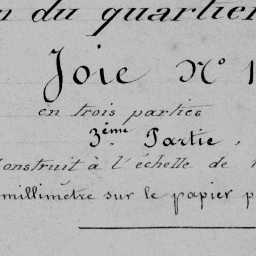 n du quartier
Joie N° 1
en trois parties
3ème Partie.
Construit à l'échelle de
millimètre sur le papier p